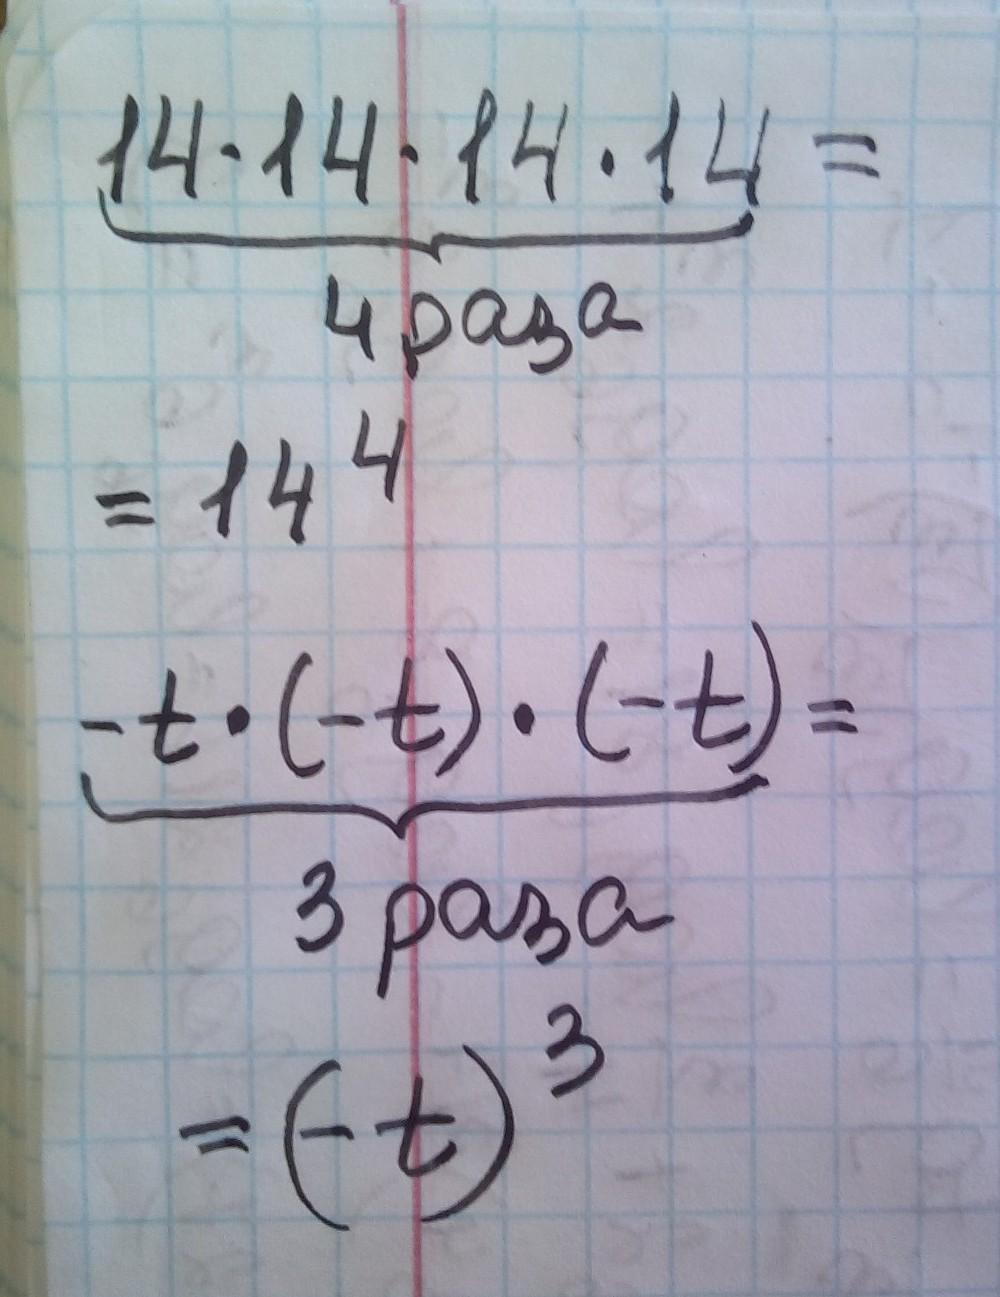 14·14·14·14=
4 раза
=14⁴
-t·(-t)·(-t)=
3 раза
=(-t)³